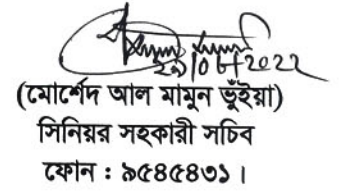 ২৯/০৮/২০২২
(মোর্শেদ আল মামুন ভূঁইয়া)
সিনিয়র সহকারী সচিব
ফোন : ৯৫৪৫৪৩১ ।